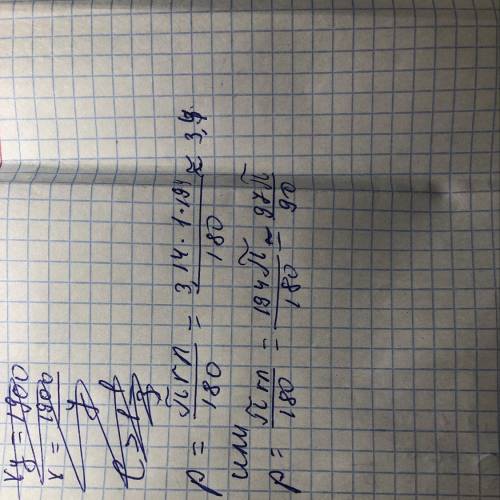 xy = 1900
x = 1900/y
p = πrn/180 = 3,14 · 1 · 194/180 ≈ 3,4
или
p = πrn/180 = 194π/180 = 97π/90